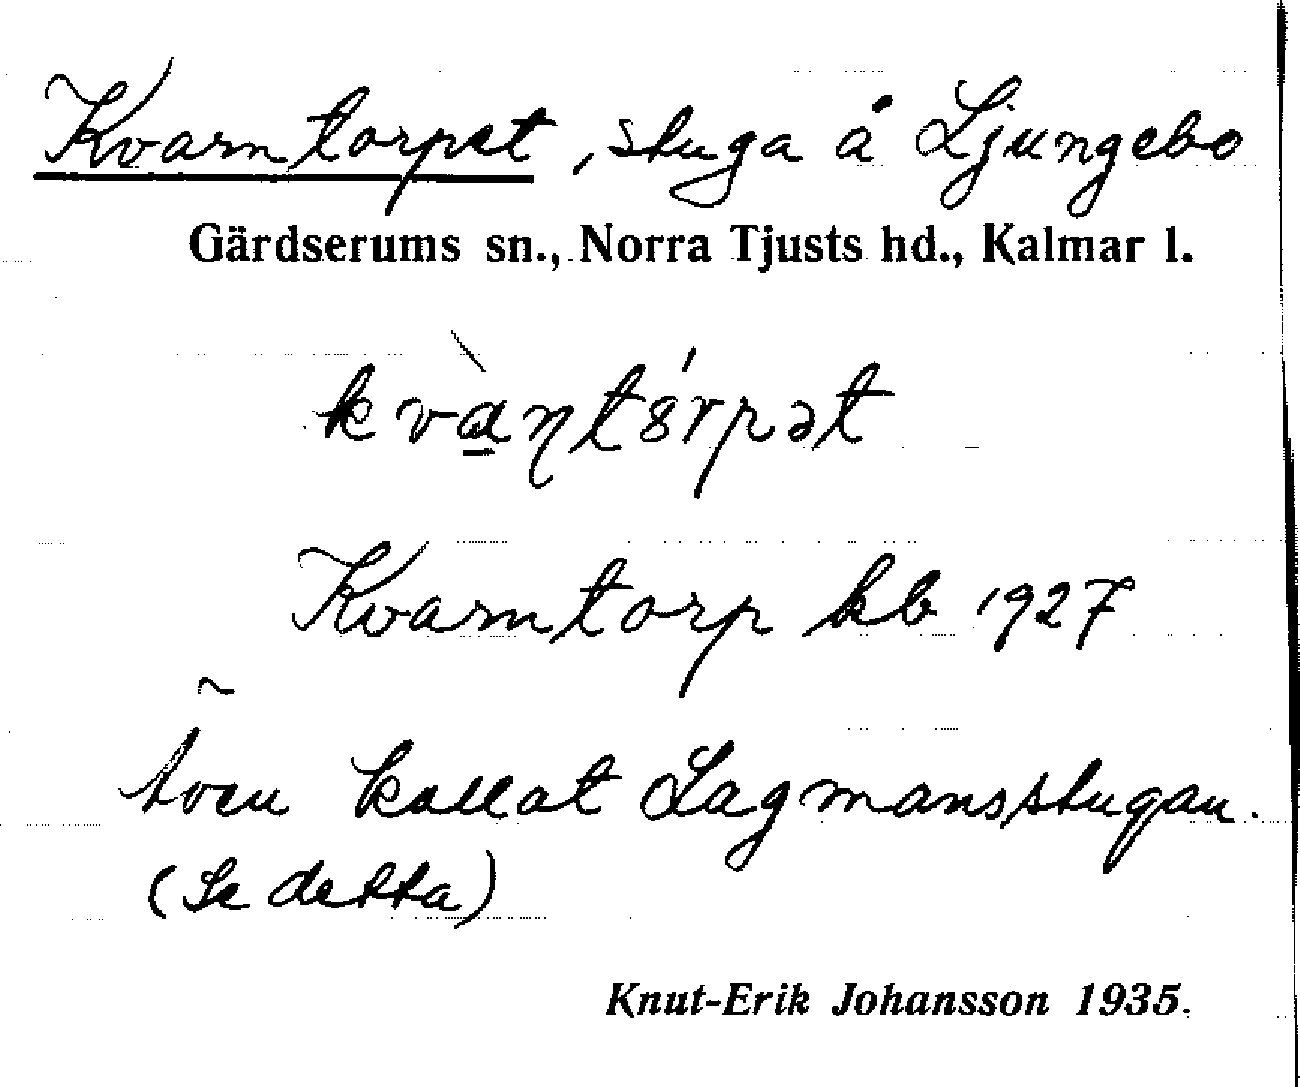 Kvarntorpet, stuga å Ljungebo
Gärdserums sn., Norra Tjusts hd., Kalmar l.
kvàṇtórpət
Kvarntorp kb 1927
Även kallat Lagmansstugan.
(Se detta)
Knut-Erik Johansson 1935.